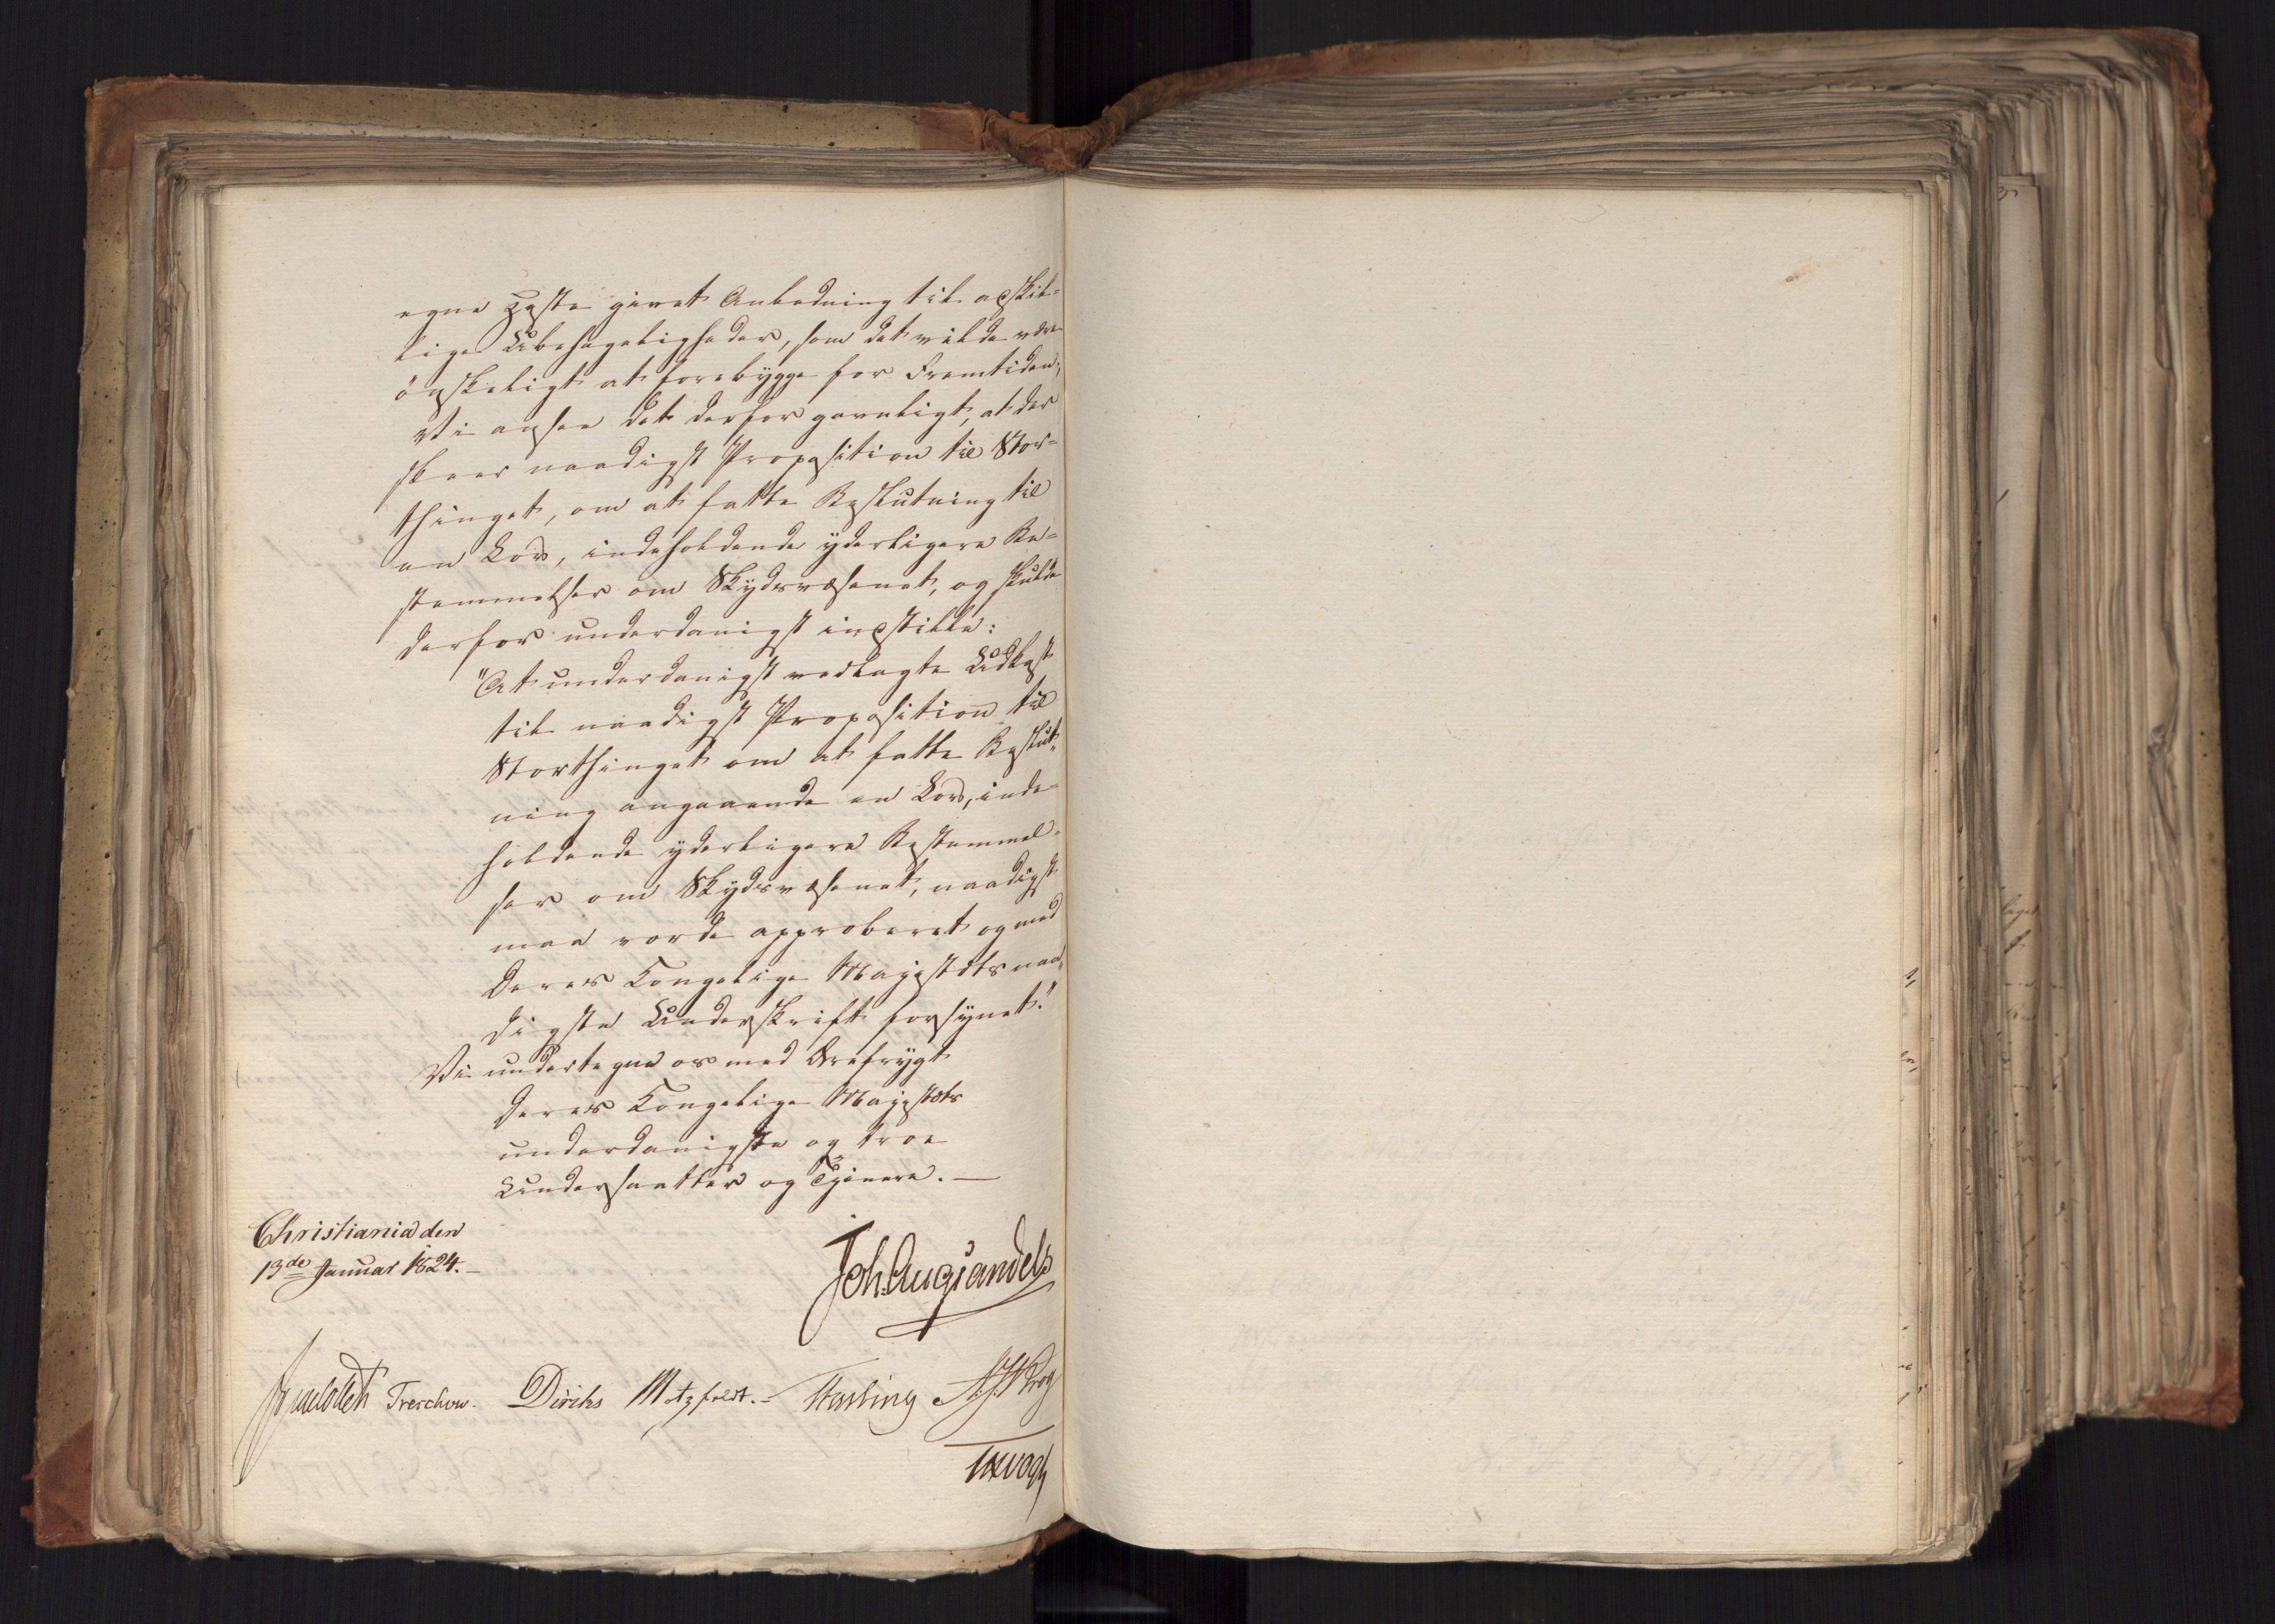 egne Heste givet Anledning til adskil-
lige Ubehageligheder, som det vilde være
ønskeligt at forebygge for Fremtiden;
Vi ansee det derfor gavnligt, at der
skeer naadigst Proposition til Stor-
thinget, om at fatte Beslutning til
en Lov, indeholdende yderligere Be-
stemmelser om Skydsvæsenet, og skulde
derfor underdanigst indstille:
"At underdanigst vedlagte Udkast
til naadigst Proposition til
Storthinget om at fatte Beslut-
ning angaaende en Lov, inde-
holdende yderligere Bestemmel-
ser om Skydsvæsenet, naadigst
maa vorde approberet og med
Deres Kongelige Majestæts naa-
digste Underskrift forsynet."
Vi undertegne os med Ærefrygt
Deres Kongelige Majestæts
underdanigste og troe
Undersaatter og Tjenere. —
Christiania den
13de Januar 1824. -
Joh: Aug: Sandels
Treschow. Diriks Motzfeldt. - Fasting Krog
Vogt